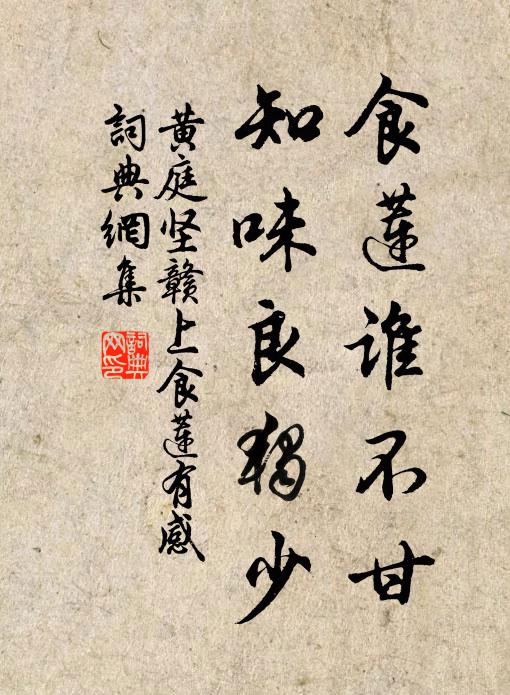 食蓮誰不甘
知味良獨少
黄庭坚赣上食蓮有感
詞典網集
詞典网印